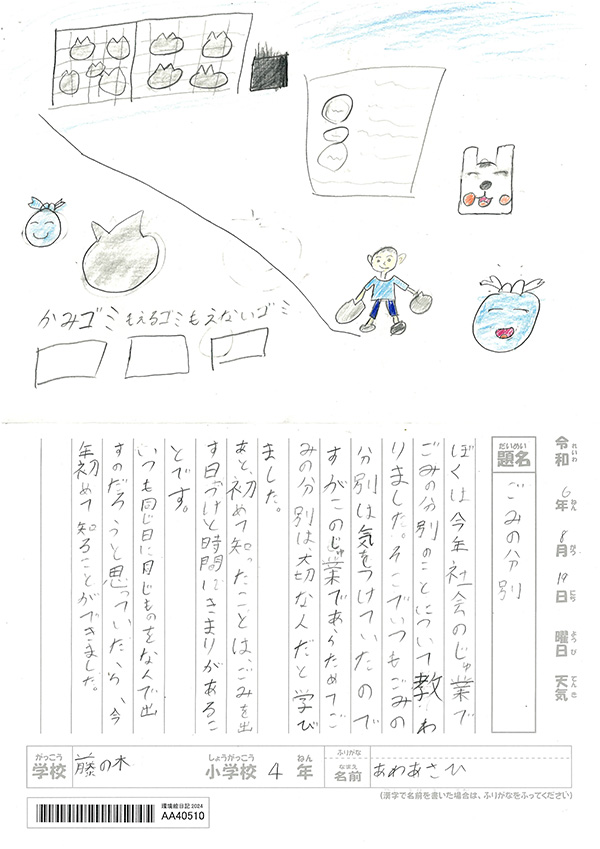 かみゴミ もえるゴミ もえないゴミ
令和6年8月19日 曜日 天気
れいわ ねん がつ にち ようび てんき
だいめい
題名 ごみの分別
ぼくは今年社会のじゅ業で
ごみの分別のことについて教わ
りました。そこでいつもごみの
分別は気をつけていたので
すがこのじゅ業であらためてご
みの分別は、大切な人だと学び
ました。
あと、初めて知ったことは、ごみを出
す日づけと時間にきまりがあるこ
とです。
いつも同じ日に同じものをなんで出
すのだろうと思っていたら、今
年初めて知ることができました。
がっこう しょうがっこう ねん ふりがな
学校 藤の木 小学校 4年 なまえ 名前 あわあさひ
(漢字で名前を書いた場合は、ふりがなをふってください)
環境絵日記2024
AA40510